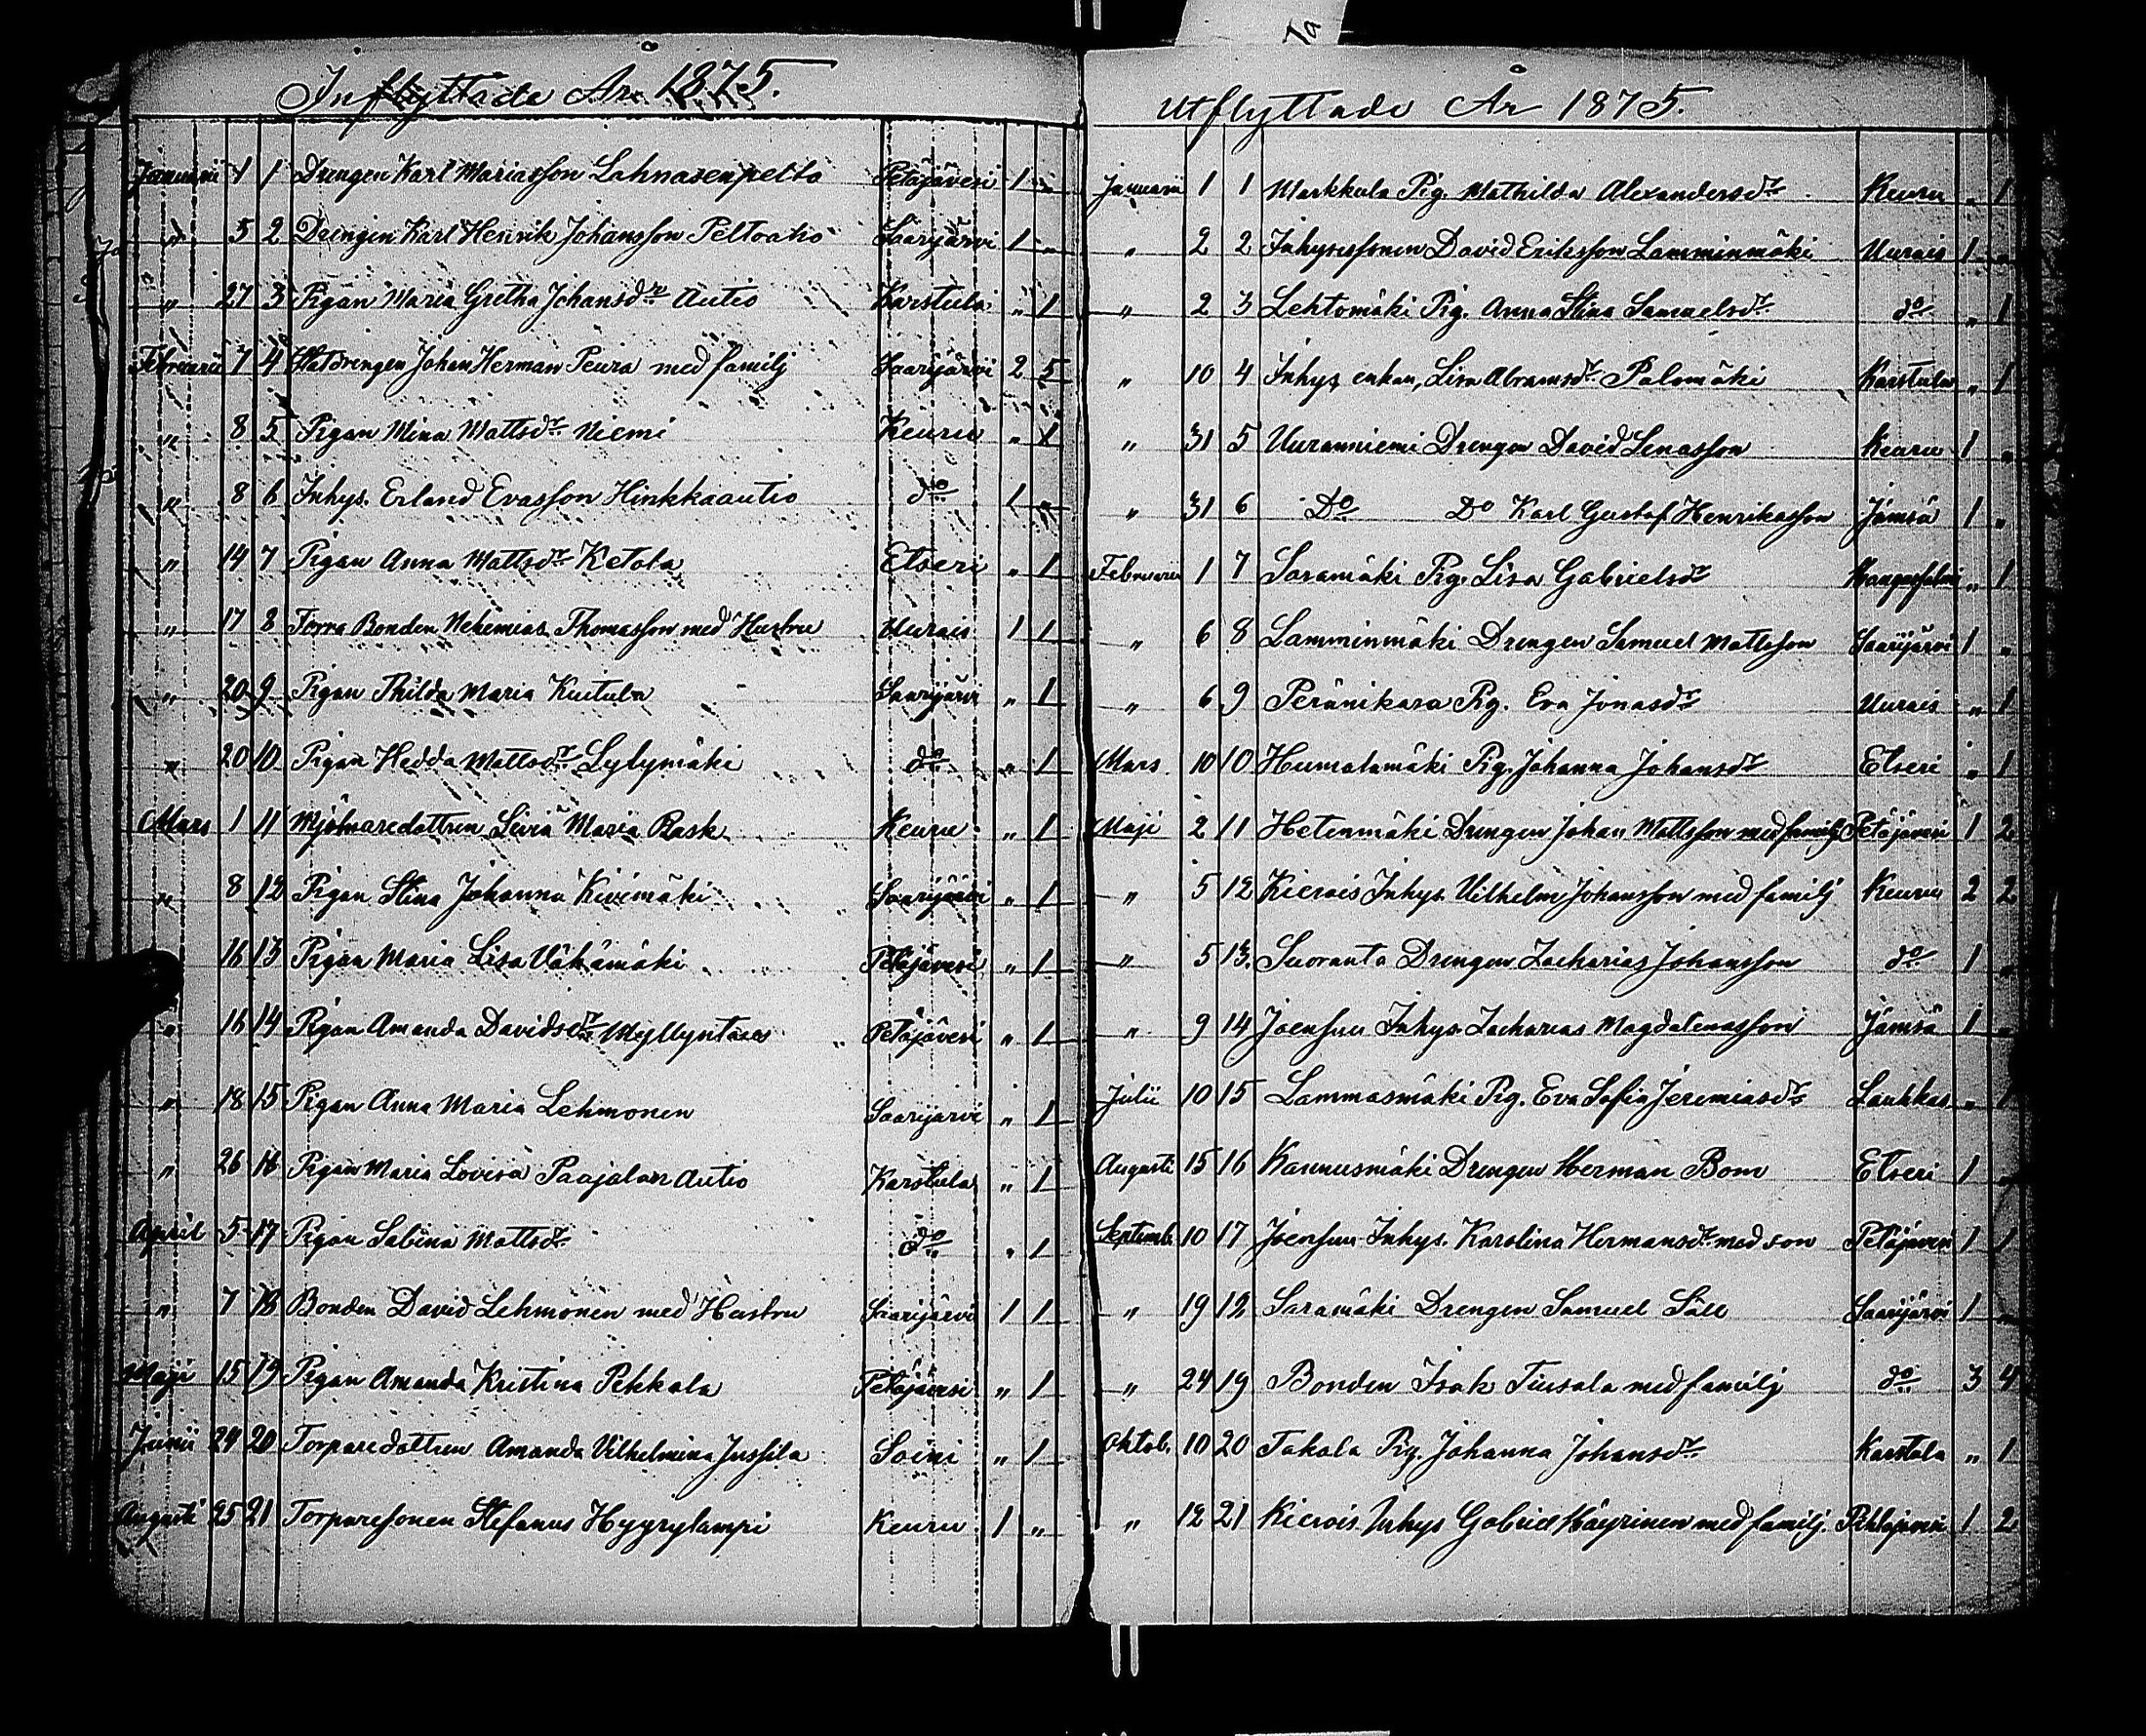 Inflyttade År 1875.
Januarii 1 1 Drengen Karl Mariasson Lahnasenpelto Petäjävesi 1 "
" 5 2 Drengen Karl Henrik Johansson Peltoaho Saarijärvi 1 "
" 27 3 Pigan Maria Gretha Johansdr Autio Karstula " 1
Februarii 7 4 Statdrengen Johan Herman Peura med familj Saarijärvi 2 5
" 8 5 Pigan Mina Mattsdr Niemi Keuru " 1
" 8 6 Inhys. Erland Evasson Hinkkaautio do 1 "
" 14 7 Pigan Anna Mattsdr Ketola Etseri " 1
" 17 8 Torra Bonden Nehemias Thomasson med Hustru Uurais 1 1
" 20 9 Pigan Thilda Maria Kuitula Saarijärvi " 1
" 20 10 Pigan Hedda Mattsdr Lylymäki do " 1
Mars 1 11 Mjölnaredottren Livia Maria Rask Keuru " 1
" 8 12 Pigan Stina Johanna Kivimäki Saarijärvi " 1
16 13 Pigan Maria Lisa Vähämäki Petäjävesi " 1
" 16 14 Pigan Amanda Davidsdr Myllyntaus Petäjävesi " 1
" 18 15 Pigan Anna Maria Lehmonen Saarijärvi " 1
" 26 16 Pigan Maria Lovisa Paajalan Autio Karstula " 1
April 5 17 Pigan Sabina Mattsdr do " 1
" 7 18 Bonden David Lehmonen med Hustru Saarijärvi 1 1
Maji 15 19 Pigan Amanda Kristina Pekkala Petäjävesi " 1
Junii 24 20 Torparedottren Amanda Vilhelmina Jussila Soini " 1
Augusti 25 21 Torparesonen Stefanus Hyyrylampi Keuru 1 "
Utflyttade År 1875.
Januarii 1 1 Markkula Pig. Mathilda Alexandersdr Keuru " 1
" 2 2 Inhysessonen David Eriksson Lamminmäki Uurais 1 "
" 2 3 Lehtomäki Pig. Anna Stina Samuelsdr do " 1
" 10 4 Inhys enkan, Lisa Abramsdr Palomäki Karstula " 1
" 31 5 Uuranniemi Drengen David Lenasson Keuru 1 "
" 31 6 Do Do Karl Gustaf Henriksson Jämsä 1 "
Februarii 1 7 Saramäki Pig. Lisa Gabrielsdr " 1
" 6 8 Lamminmäki Drengen Samuel Mattsson Saarijärvi 1 "
" 6 9 Peränikara Pig. Eva Jonasdr Uurais " 1
Mars 10 10 Humalamäki Pig. Johanna Johansdr Etseri " 1
Maji 2 11 Hetenmäki Drengen Johan Mattsson med familj Petäjävesi 1 2
" 5 12 Kierois Inhys. Vilhelm Johansson med familj Keuru 2 2
" 5 13. Suoranta Drengen Zacharias Johansson do 1 "
" 9 14 Joensuu Inhys. Zacharias Magdalenasson Jämsä 1 "
Julii 10 15 Lammasmäki Pig. Eva Sofia Jeremiasdr Laukkas " 1
Augusti 15 16 Kannusmäki Drengen Herman Bom Etseri 1 "
Septemb. 10 17 Joensuu Inhys. Karolina Hermansdr med son Petäjävesi 1 1
" 19 18 Saramäki Drengen Samuel Säll Saarijärvi 1 "
" 24 19 Bonden Isak Tiusala med familj do 3 4
Oktob. 10 20 Takala Pig. Johanna Johansdr Karstula " 1
" 12 21 Kierois Inhys Gabriel Käyrinen med familj. Pihlajavesi 1 2